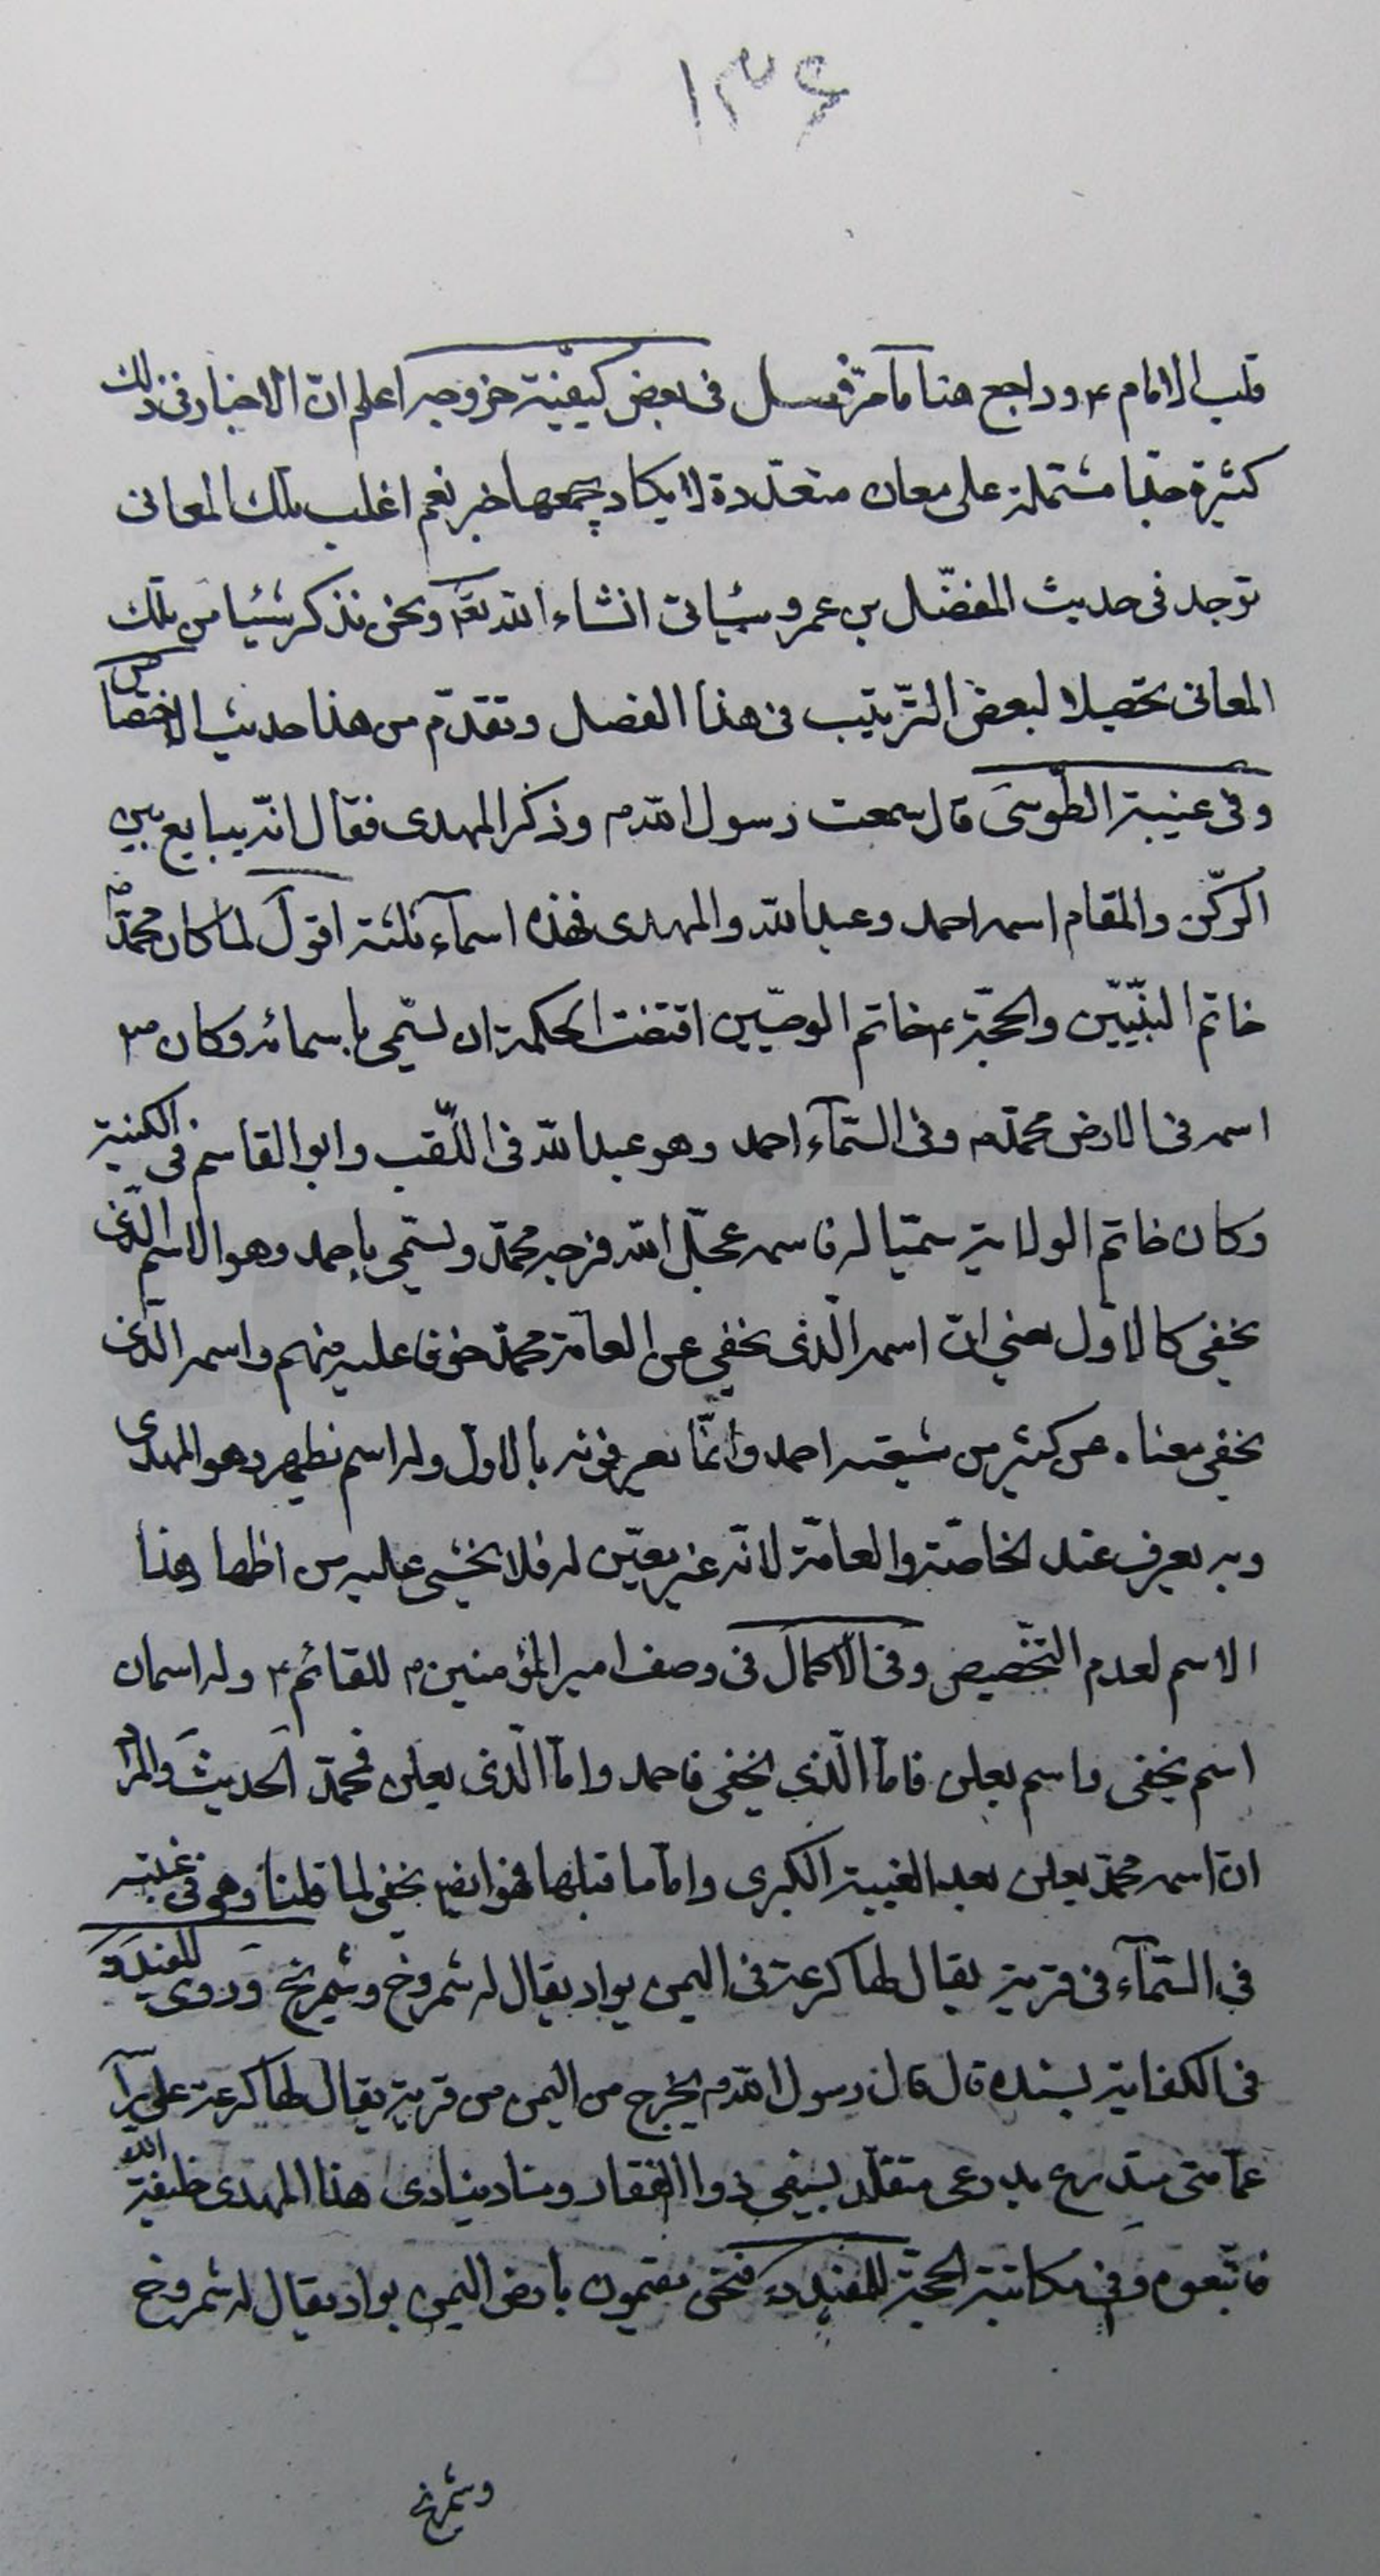 ١٣۶
قلب الامام ۴ وراجع هنا ما مرّ فصل فى بعض كيفيّة خروجه اعلم ان الاخبار فى ذلك
كثيرة جدّا مشتملة على معان متعدّدة لا يكاد يجمعها خبر نعم اغلب تلك المعانى
توجد فى حديث المفضّل بن عمر وسيأتى انشاء الله تعا ونحن نذكر شيئا من تلك
المعانى تحصيلا لبعض الترتيب فى هذا الفصل وتقدّم من هذا حديث الاختصاص
وفى غيبة الطّوسى قال سمعت رسول الله ص وذكر المهدى فقال انّه يبايع بين
الركن والمقام اسمه احمد وعبد الله والمهدى فهذه اسماء ثلثة اقول لما كان محمّد ص
خاتم النبيّين والحجّة ۴ خاتم الوصيّين اقتضت الحكمة ان يسمّى باسمائه وكان ص
اسمه فى الارض محمّد ص وفى السّماء احمد وهو عبد الله فى اللّقب وابو القاسم فى الكنية
وكان خاتم الولاية سميّا له فاسمه عجّل الله فرجه محمّد ويسمّى باحمد وهو الاسم الّذى
يخفى كالاوّل يعنى انّ اسمه الّذى يخفى عن العامّة محمّد خوفا عليه منهم واسمه الّذى
يخفى معناه عن كثير من شيعته احمد وانّما يعرفونه بالاول وله اسم يظهر وهو المهدى
وبه يعرف عند الخاصّة والعامّة لانّه غير معيّن له فلا يخشى عليه من اظهار هذا
الاسم لعدم التخصيص وفى الاكمال فى وصف امير المؤمنين ۴ للقائم ۴ وله اسمان
اسم يخفى واسم يعلن فامّا الّذى يخفى فاحمد وامّا الّذى يعلن فمحمّد الحديث والمراد
ان اسمه محمّد يعلن بعد الغيبة الكبرى وامّا ما قبلها فهو ايضا يخفى لما قلنا وهو فى غيبته
فى السّماء فى قرية يقال لها كرعة فى اليمن بواد يقال له شمروخ وشمريخ وروى المفيد ره
فى الكفاية بسنده قال قال رسول الله ص يخرج من اليمن من قرية يقال لها كرعة على رأسه
عمامتى متدرع بدرعى متقلّد بسيفى ذو الفقار ومناد ينادى هذا المهدى خليفة الله
فاتبعوه وفى مكاتبة الحجّة للمفيد ره فنحن مقيمون بارض اليمن بواد يقال له شمروخ
وشمريخ